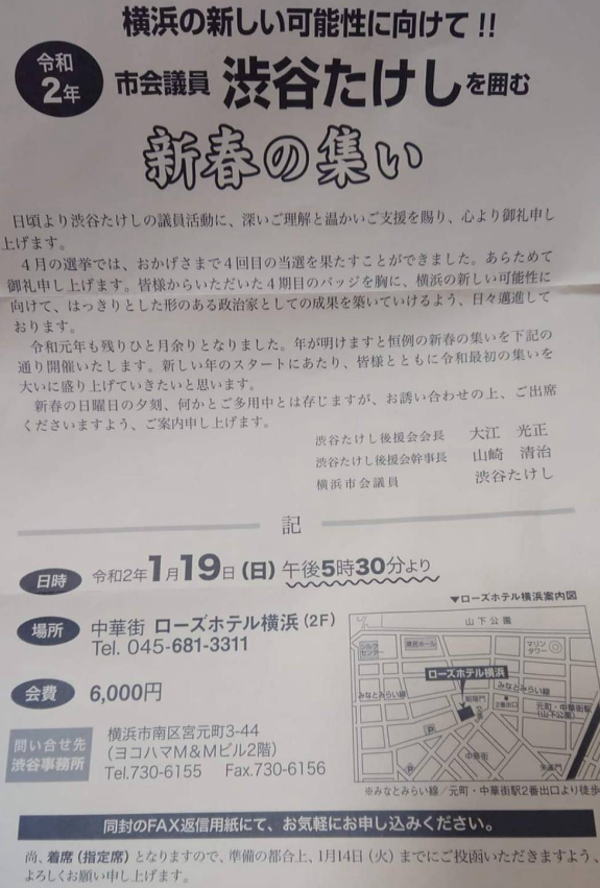 横浜の新しい可能性に向けて!!
令和2年
市会議員 渋谷たけしを囲む
新春の集い
日頃より渋谷たけしの議員活動に、深いご理解と温かいご支援を賜り、心より御礼申し
上げます。
4月の選挙では、おかげさまで4回目の当選を果たすことができました。あらためて
御礼申し上げます。皆様からいただいた4期目のバッジを胸に、横浜の新しい可能性に
向けて、はっきりとした形のある政治家としての成果を築いていけるよう、日々邁進して
おります。
令和元年も残りひと月余りとなりました。年が明けますと恒例の新春の集いを下記の
通り開催いたします。新しい年のスタートにあたり、皆様とともに令和最初の集いを
大いに盛り上げていきたいと思います。
新春の日曜日の夕刻、何かとご多用中とは存じますが、お誘い合わせの上、ご出席
くださいますよう、ご案内申し上げます。
渋谷たけし後援会会長 大江 光正
渋谷たけし後援会幹事長 山崎 清治
横浜市会議員 渋谷たけし
記
日時 令和2年1月19日(日)午後5時30分より
場所 中華街 ローズホテル横浜(2F)
Tel. 045-681-3311
会費 6,000円
問い合せ先
渋谷事務所
横浜市南区宮元町3-44
(ヨコハマM&Mビル2階)
Tel.730-6155 Fax.730-6156
▼ローズホテル横浜案内図
山下公園
シルクセンター
県民ホール
マリンタワー
ローズホテル横浜
みなとみらい線
みなとみらい線
朝陽門
2番出口
元町・中華街駅
(山下公園)
P
P
中華街
朱雀門
※みなとみらい線/元町・中華街駅2番出口より徒歩
同封のFAX返信用紙にて、お気軽にお申し込みください。
尚、着席(指定席)となりますので、準備の都合上、1月14日(火)までにご投函いただきますよう、
よろしくお願い申し上げます。